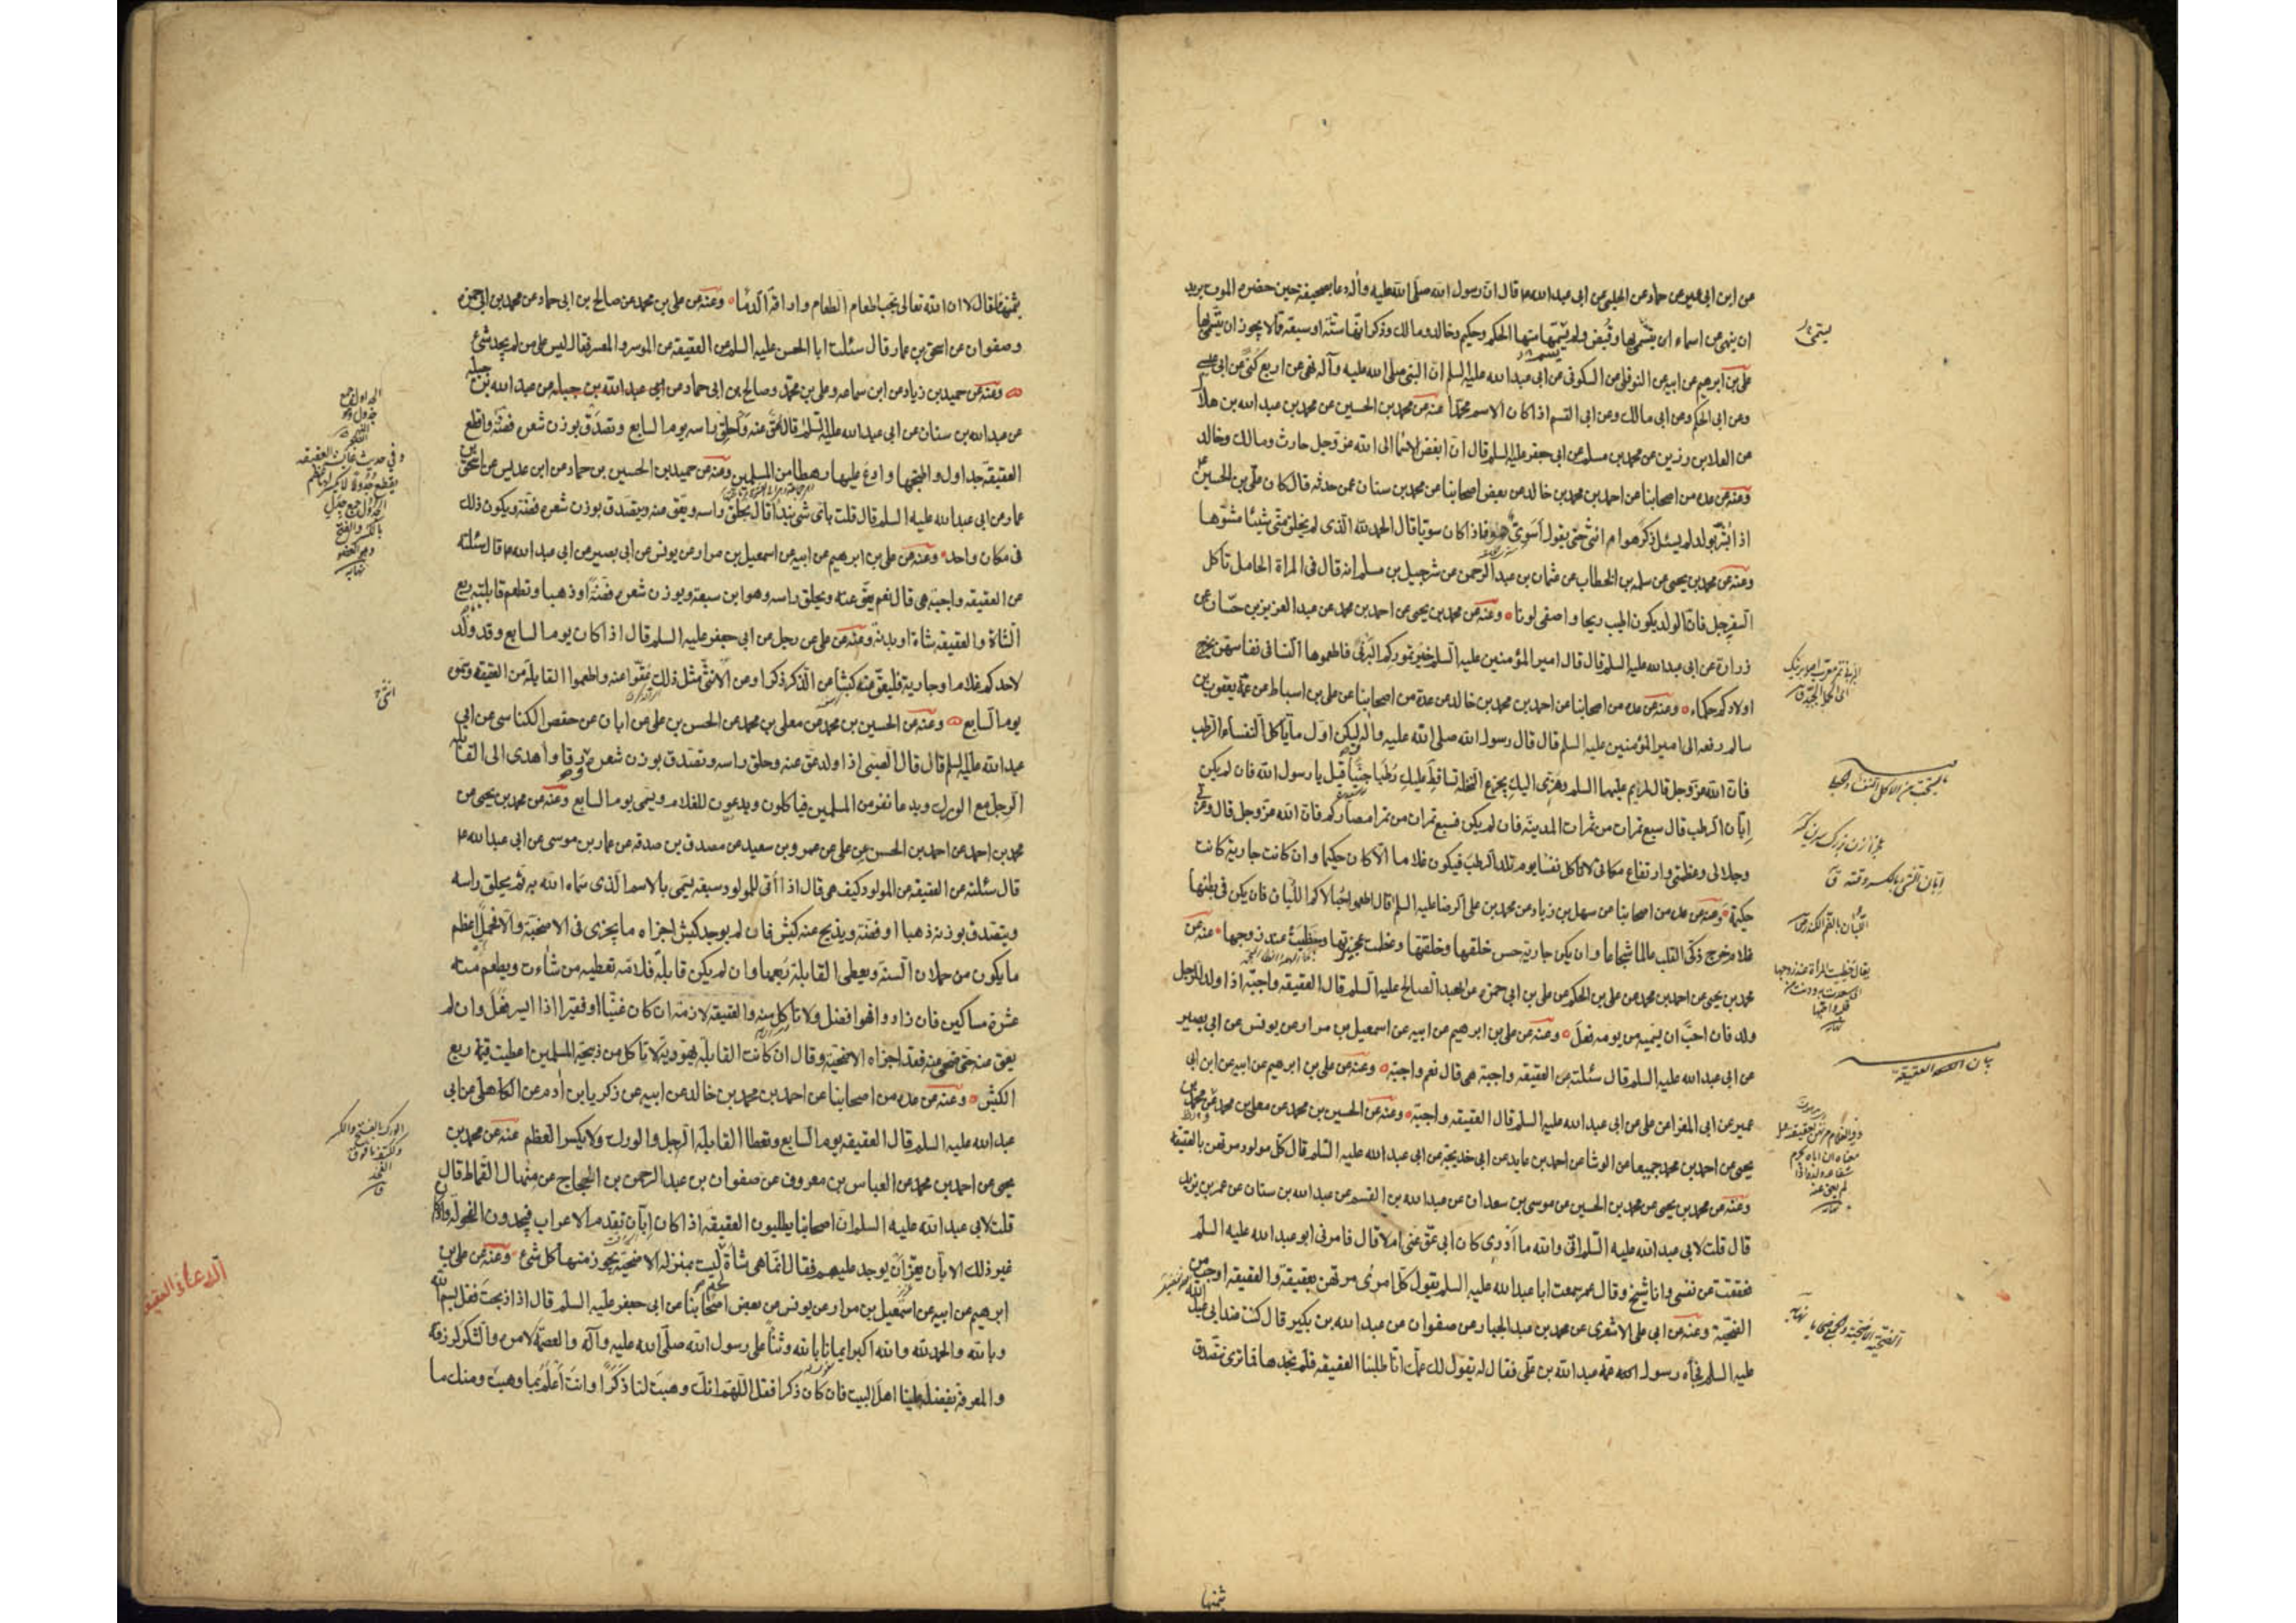 عن ابن ابى عمير عن حماد عن الحلبى عن ابى عبد الله ع قال ان رسول الله صلى الله عليه وآله دعا بصحيفة حين حضره الموت يريد
ان ينهى عن اسماء ان يتسمى بها وقبض ولم يسمها منها الحكم وحكيم وخالد ومالك وذكر انها ستة او سبعة مما لا يجوز ان يتسمى بها
على بن ابرهيم عن ابيه عن النوفلى عن السكونى عن ابى عبد الله عليه السلم ان النبى صلى الله عليه وآله نهى عن اربع كنى عن ابى عيسى
وعن ابى الحكم وعن ابى مالك وعن ابى القسم اذا كان الاسم محمدا عنه عن محمد بن الحسين عن محمد بن عبد الله بن هلال
عن العلا بن رزين عن محمد بن مسلم عن ابى جعفر عليه السلم قال ان ابغض الاسما الى الله عز وجل حارث ومالك وخالد
وعنه عن عده من اصحابنا عن احمد بن محمد بن خالد عن بعض اصحابنا عن محمد بن سنان عمن حدثه قال كان على بن الحسين ع
اذا بشر بولد لم يسئل ذكر هو ام انثى حتى يقول أسوى هو فاذا كان سويا قال الحمد لله الذى لم يخلق منى شيئا مشوها
وعنه عن محمد بن يحيى عن سلمه بن الخطاب عن عثمان بن عبد الرحمن عن شرحبيل بن مسلم انه قال فى المراة الحامل تاكل
السفرجل فان الولد يكون اطيب ريحا واصفى لونا وعنه عن محمد بن يحيى عن احمد بن محمد عن عبد العزيز بن حسان عن
زرارة عن ابى عبد الله عليه السلم قال قال امير المؤمنين عليه السلم خير تموركم البرنى فاطعموها النسا فى نفاسهن يخرج
اولادكم حكماء وعنه عن عده من اصحابنا عن احمد بن محمد بن خالد عن عدة من اصحابنا عن على بن اسباط عن عمه يعقوب بن
سالم رفعه الى امير المؤمنين عليه السلم قال قال رسول الله صلى الله عليه وآله ليكن اول ما تاكل النفساء الرطب
فان الله عز وجل قال لمريم عليها السلم وهزى اليك بجزع النخلة تساقط عليك رطبا جنيا قيل يا رسول الله فان لم يكن
إبان الرطب قال سبع تمرات من تمرات المدينة فان لم يكن فسبع تمرات من تمر امصاركم فان الله عز وجل قال وعزتى
وجلالى وعظمتى وارتفاع مكانى لا تاكل نفسا يوم تلد الرطب فيكون غلاما الا كان حكيما وان كانت جارية كانت
حكيمة وعنه عن عده من اصحابنا عن سهل بن زياد عن محمد بن على الرضا عليه السلم قال اطعموا حبالاكم اللبان فان يكن فى بطنها
غلام خرج ذكى القلب عالما شجاعا وان يكن جارية حسن خلقها وخلقتها وعظمت عجيزتها وحظيت عند زوجها عنه عن
محمد بن يحيى عن احمد بن محمد عن على بن الحكم عن على بن ابى حمزه عن العبد الصالح عليه السلم قال العقيقه واجبة اذا ولد للرجل
ولد فان احب ان يسميه من يومه فعل وعنه عن على بن ابرهيم عن ابيه عن اسمعيل بن مرار عن يونس عن ابى بصير
عن ابى عبد الله عليه السلم قال سئلته عن العقيقه واجبة هى قال نعم واجبة وعنه عن على بن ابرهيم عن ابيه عن ابن ابى
عمير عن ابى المغرا عن على عن ابى عبد الله عليه السلم قال العقيقه واجبة وعنه عن الحسين بن محمد عن معلى بن محمد وعن محمد بن
يحيى عن احمد بن محمد جميعا عن الوشا عن احمد بن عايد عن ابى خديجة عن ابى عبد الله عليه السلم قال كل مولود مرتهن بالعقيقة
وعنه عن محمد بن يحيى عن محمد بن الحسين عن موسى بن سعدان عن عبد الله بن القسم عن عبد الله بن سنان عن عمر بن يزيد
قال قلت لابى عبد الله عليه السلم انى والله ما أدرى كان ابى عق عنى ام لا قال فامرنى ابو عبد الله عليه السلم
فعققت عن نفسى وانا شيخ وقال عمر سمعت ابا عبد الله عليه السلم يقول كل امرئ مرتهن بعقيقة والعقيقه اوجب من
الضحية وعنه عن ابى على الاشعرى عن محمد بن عبد الجبار عن صفوان عن عبد الله بن بكير قال كنت عند ابى عبد الله
عليه السلم فجاه رسول عمه عبد الله بن على فقال له يقول لك عمك انا طلبنا العقيقه فلم نجدها فما ترى نتصدق
يستحب من الاكل للنفساء والحبلى
إبان الشئ بالكسر وقته ق
اللبان بالضم الكندر ص
بيان العقيقة
ثمنها
بثمنها فقال لا ان الله تعالى يحب اطعام الطعام واراقة الدما وعنه عن على بن محمد عن صالح بن ابى حماد عن محمد بن ابى حمزه
وصفوان عن اسحق بن عمار قال سئلت ابا الحسن عليه السلم عن العقيقه عن الموسر والمعسر فقال ليس على من لم يجد شئ
وعنه عن حميد بن زياد عن ابن سماعه وعلى بن محمد وصالح بن ابى حماد عن ابى عبد الله بن جبله عن عبد الله بن جبله
عن عبد الله بن سنان عن ابى عبد الله عليه السلم قال عق عنه واحلق راسه يوم السابع وتصدق بوزن شعره فضة واقطع
العقيقة جداول واطبخها وادع عليها رهطا من المسلمين وعنه عن حميد بن الحسين بن حماد عن ابن عديس عن اسحق بن
عمار عن ابى عبد الله عليه السلم قال قلت باى شئ نبدأ قال يحلق راسه ويعق عنه ويتصدق بوزن شعره فضة ويكون ذلك
فى مكان واحد وعنه عن على بن ابرهيم عن ابيه عن اسمعيل بن مرار عن يونس عن ابى بصير عن ابى عبد الله ع قال سئلته
عن العقيقه واجبة هى قال نعم يعق عنه ويحلق راسه وهو ابن سبعة ويوزن شعره فضة او ذهبا وتطعم قابلته ربع
الشاة والعقيقه شاة او بدنة وعنه عن على عن رجل عن ابى جعفر عليه السلم قال اذا كان يوم السابع وقد ولد
لاحدكم غلاما او جارية فليعق عنه كبشا عن الذكر ذكرا وعن الانثى مثل ذلك عقوا عنه واطعموا القابلة من العقيقه وسموه
يوم السابع وعنه عن الحسين بن محمد عن معلى بن محمد عن الحسن بن على عن ابان عن حفص الكناسى عن ابى
عبد الله عليه السلم قال قال الصبى اذا ولد عق عنه وحلق راسه وتصدق بوزن شعره ورقا واهدى الى القابله
الرجل مع الورك ويدعا نفر من المسلمين فياكلون ويدعون للغلام ويسمى يوم السابع وعنه عن محمد بن يحيى عن
محمد بن احمد عن احمد بن الحسن عن على عن عمرو بن سعيد عن مصدق بن صدقه عن عمار بن موسى عن ابى عبد الله ع
قال سئلته عن العقيقه عن المولود كيف هى قال اذا أتى للمولود سبعه يسمى بالاسم الذى سماه الله به ثم يحلق راسه
ويتصدق بوزنه ذهبا او فضة ويذبح عنه كبش فان لم يوجد كبش اجزاه ما يجزى فى الاضحية والا فحمل اعظم
ما يكون من حملان السنة ويعطى القابلة ربعها وان لم يكن قابلة فلامه تعطيه من شاءت ويطعم منه
عشرة مساكين فان زادوا فهو افضل ولا تاكل منه والعقيقه لازمة ان كان غنيا او فقيرا اذا ايسر فعل وان لم
يعق عنه حتى ضحى عنه فقد اجزاه الاضحية وقال ان كانت القابلة يهودية لا تاكل من ذبيحة المسلمين اعطيت قيمة ربع
الكبش وعنه عن عده من اصحابنا عن احمد بن محمد بن خالد عن ابيه عن زكريا بن آدم عن الكاهلى عن ابى
عبد الله عليه السلم قال العقيقه يوم السابع وتعطا القابلة الرجل والورك ولا يكسر العظم عنه عن محمد بن
يحيى عن احمد بن محمد عن العباس بن معروف عن صفوان بن عبد الرحمن بن الحجاج عن منهال القماط قال
قلت لابى عبد الله عليه السلم ان اصحابنا يطلبون العقيقه اذا كان إبان تقدم الاعراب فيجدون الفحولة وان كان
غير ذلك الابان يعز ان يوجد عليهم فقال انما هى شاة لحم ليست بمنزلة الاضحية يجوز منها كل شئ وعنه عن على بن
ابرهيم عن ابيه عن اسمعيل بن مرار عن يونس عن بعض اصحابنا عن ابى جعفر عليه السلم قال اذا ذبحت فقل بسم الله
وبالله والحمد لله والله اكبر ايمانا بالله وثنا على رسول الله صلى الله عليه وآله والعصمة لامره والشكر لرزقه
والمعرفة بفضله علينا اهل البيت فان كان ذكرا فقل اللهم انك وهبت لنا ذكرا وانت أعلم بما وهبت ومنك ما
الدعاء العقيقه